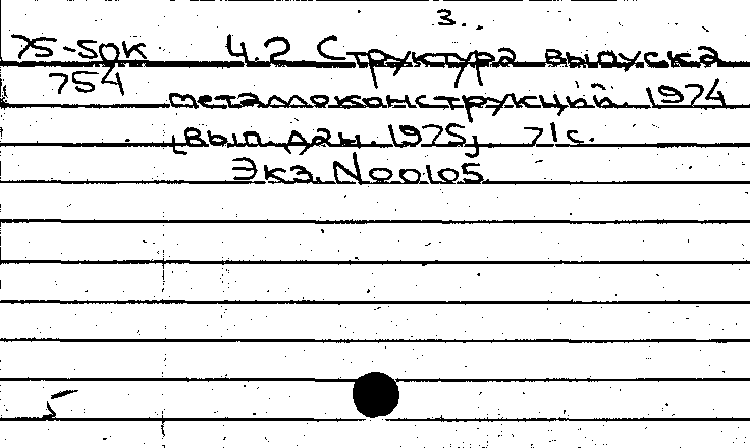 3.
75-50к 4.2 Структура выпуска
754 металлоконструкций. 1974
[Вып. дан. 1975]. 71с.
Экз. N00105
5